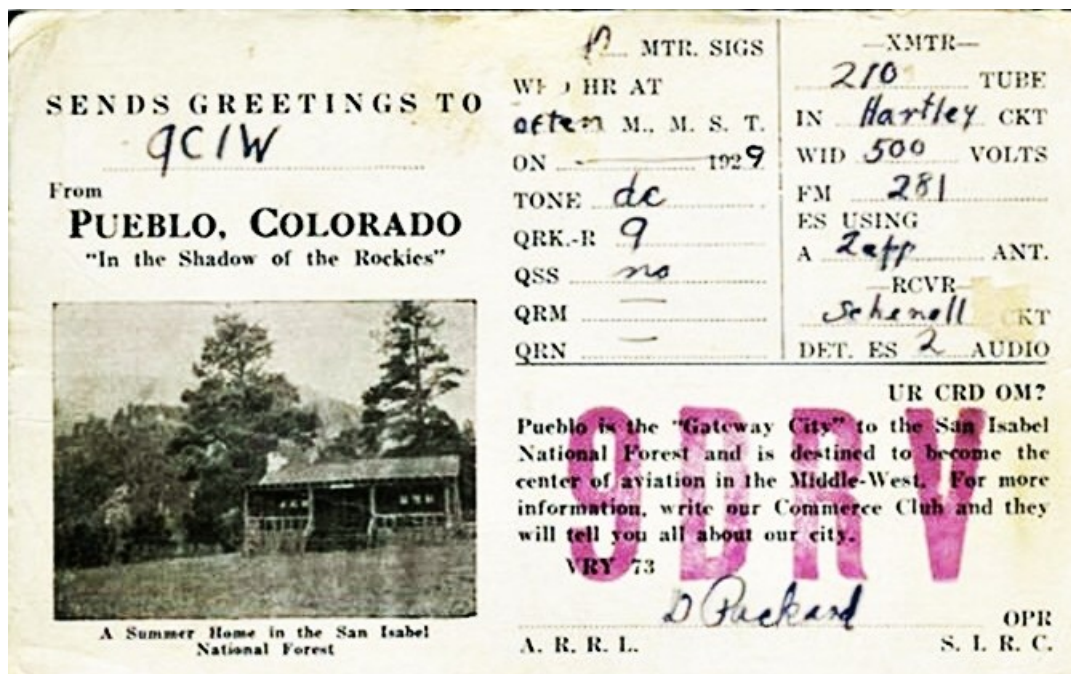 SENDS GREETINGS TO
9CIW
From
PUEBLO, COLORADO
"In the Shadow of the Rockies"
A Summer Home in the San Isabel
National Forest
MTR. SIGS
HR AT
often M., M. S. T.
ON 1929
TONE dc
QRK.-R 9
QSS no
QRM —
QRN —
—XMTR—
210 TUBE
IN Hartley CKT
WID 500 VOLTS
FM 281
ES USING
A Zepp ANT.
—RCVR—
Schnell CKT
DET. ES 2 AUDIO
UR CRD OM?
Pueblo is the "Gateway City" to the San Isabel
National Forest and is destined to become the
center of aviation in the Middle-West. For more
information, write our Commerce Club and they
will tell you all about our city.
9DRV
VRY 73
D Packard OPR
A. R. R. L. S. I. R. C.